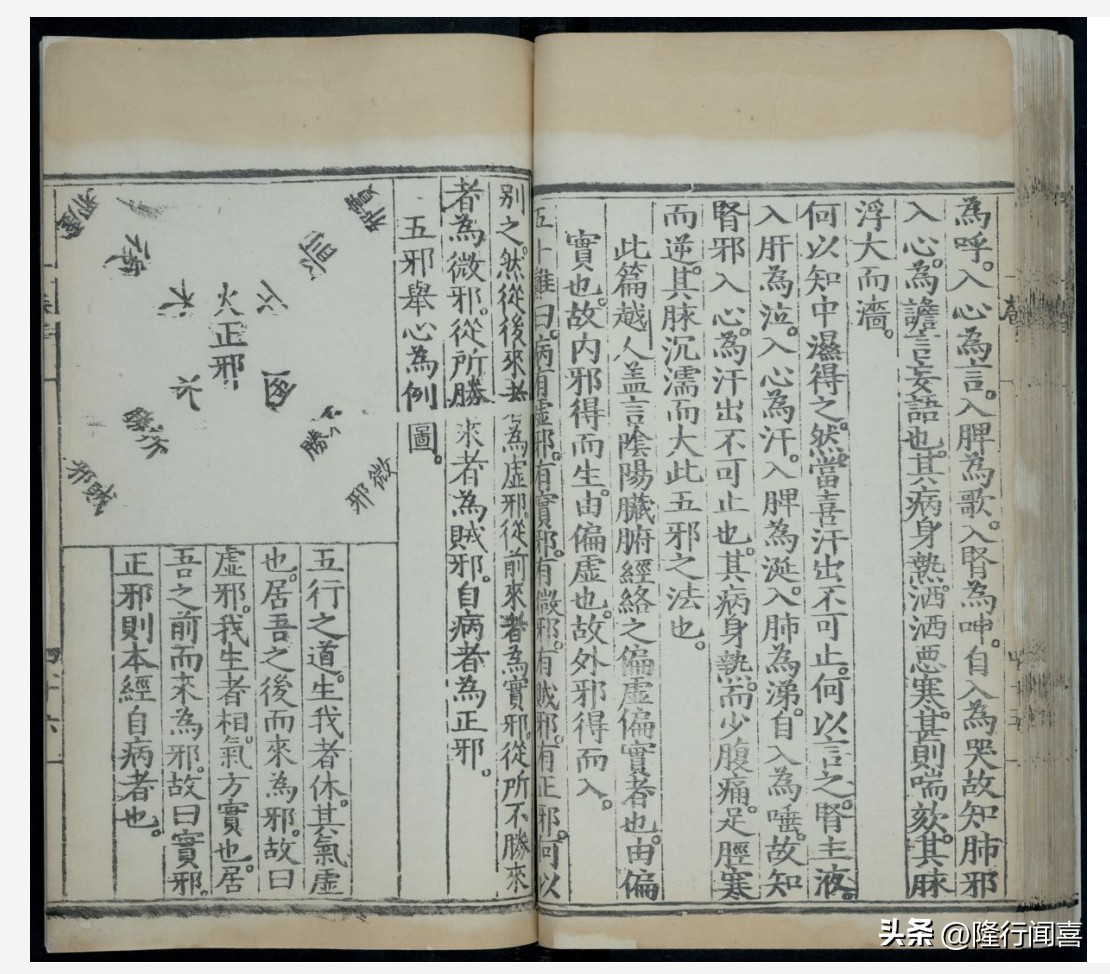 為呼。入心為言。入脾為歌。入腎為呻。自入為哭故知肺邪
入心。為譫言妄語也。其病身熱洒洒惡寒。甚則喘欬。其脉
浮大而濇。
何以知中濕得之。然。當喜汗出不可止。何以言之。腎主液。
入肝為泣。入心為汗。入脾為涎。入肺為涕。自入為唾。故知
腎邪入心。為汗出不可止也。其病身熱。而少腹痛。足脛寒
而逆。其脉沉濡而大此五邪之法也。
此篇越人盖言陰陽臟腑經絡之偏虛偏實者也。由偏
實也。故内邪得而生。由偏虛也。故外邪得而入。
五十難曰。病有虛邪。有實邪。有微邪。有賊邪。有正邪。何以
別之。然。從後來者為虛邪。從前來者為實邪。從所不勝來
者為微邪。從所勝來者為賊邪。自病者為正邪。
五邪舉心為例圖。
虛邪
實邪
後
前
木
土
火
正邪
水
金
勝
賊邪
微邪
五行之道。生我者休。其氣虛
也。居吾之後而來為邪。故曰
虛邪。我生者相。氣方實也。居
吾之前而來為邪。故曰實邪。
正邪則本經自病者也。
头条 @隆行闻喜